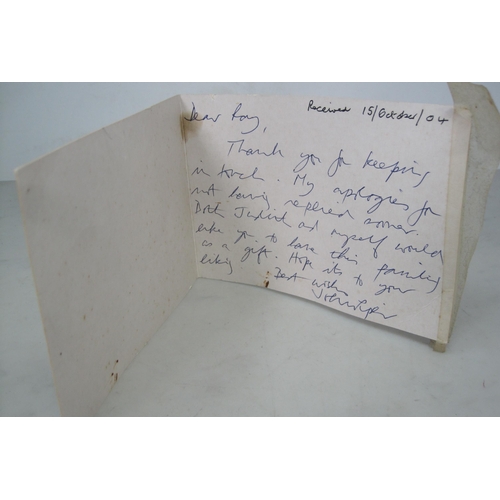 Received 15/October/04
Dear Roy,
Thank you for keeping
in touch. My apologies for
not having replied sooner.
Both Judith and myself would
like you to have this painting
as a gift. Hope its to your
liking
Best wishes
John